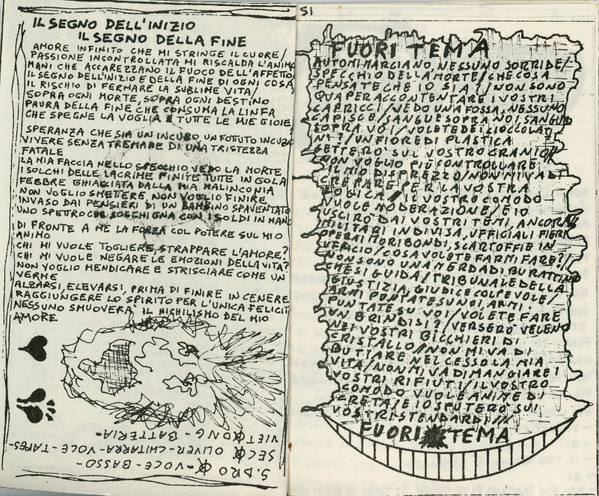 IL SEGNO DELL'INIZIO
IL SEGNO DELLA FINE
AMORE INFINITO CHE MI STRINGE IL CUORE/
PASSIONE INCONTROLLATA MI RISCALDA L'ANIMA
MANI CHE ACCAREZZANO IL FUOCO DELL'AFFETTO
IL SEGNO DELL'INIZIO E DELLA FINE DI OGNI COSA
IL RISCHIO DI FERMARE LA SUBLIME VITA/
SOPRA OGNI MORTE, SOPRA OGNI DESTINO
PAURA DELLA FINE CHE CONSUMA LA LINFA
CHE SPEGNE LA VOGLIA E TUTTE LE MIE GIOIE
SPERANZA CHE SIA UN INCUBO, UN FOTTUTO INCUBO
VIVERE SENZA TREMARE DI UNA TRISTEZZA
FATALE
LA MIA FACCIA NELLO SPECCHIO, VEDO LA MORTE
I SOLCHI DELLE LACRIME FINITE, LUTE IN GOLA
FEBBRE GHIACCIATA DALLA MIA MALINCONIA
NON VOGLIO SMETTERE, NON VOGLIO FINIRE
INVASO DAI PENSIERI DI UN BAMBINO SPAVENTATO
UNO SPETTRO CHE SOGGHIGNA CON I SOLDI IN MANO
DI FRONTE A ME LA FORZA COL POTERE SUL MIO
ANIMO
CHI MI VUOLE TOGLIERE, STRAPPARE L'AMORE?
CHI MI VUOLE NEGARE LE EMOZIONI DELLA VITA?
NON VOGLIO MENDICARE E STRISCIARE COME UN
VERME
ALZARSI, ELEVARSI, PRIMA DI FINIRE IN CENERE
RAGGIUNGERE LO SPIRITO PER L'UNICA FELICITÀ
NESSUNO SMUOVERÀ IL NICHILISMO DEL MIO
AMORE
S. DRO - VOCE - BASSO -
SEO OLIVER - CHITARRA - VOCE - TAPES -
VIET ONG - BATTERIA -
SI
FUORI TEMA
AUTOMI MARCIANO, NESSUNO SORRIDE/
SPECCHIO DELLA MORTE/CHE COSA
PENSATE CHE IO SIA?/NON SONO
QUA PER ACCONTENTARE I VOSTRI
CAPRICCI/VEDO UNA FOSSA, NESSUNO
CAPISCE/SANGUE SOPRA NOI SANGUE
SOPRA VOI/VOLETE DEI CIOCCOLATI
NI?/UN FIORE DI PLASTICA
GETTERO' SUL VOSTRO GRANITO//
NON VOGLIO PIÙ CONTROLLARE
IL MIO DISPREZZO/NON MI VA DI
CREPARE PER LA VOSTRA
LOGICA/IL VOSTRO COMODO
VUOLE MODERAZIONE/E IO
USCIRO' DAI VOSTRI TEMI, ANCORA/
MILITARI IN DIVISA, UFFICIALI FIERI
PER I MORIBONDI, SCARTOFFIE IN
UFFICIO/COSA VOLETE FARMI FARE?/
NON SONO UNA MERDA DI BURATTINO
CHE SI GUIDA/TRIBUNALE DELLA
GIUSTIZIA, GIUDICE COLPEVOLE/
ARMI PUNTATE SU NOI, ARMI
PUNTATE SU VOI/VOLETE FARE
UN BRINDISI?/VERSERO' VELENO
NEI VOSTRI BICCHIERI DI
CRISTALLO/NON MI VA DI
BUTTARE NEL CESSO LA MIA
VITA/NON MI VA DI MANGIARE I
VOSTRI RIFIUTI/IL VOSTRO
COMODO VUOLE ANIME DI
CRETA/E IO SPUTERO' SUI
VOSTRI STENDARDI//
FUORI TEMA